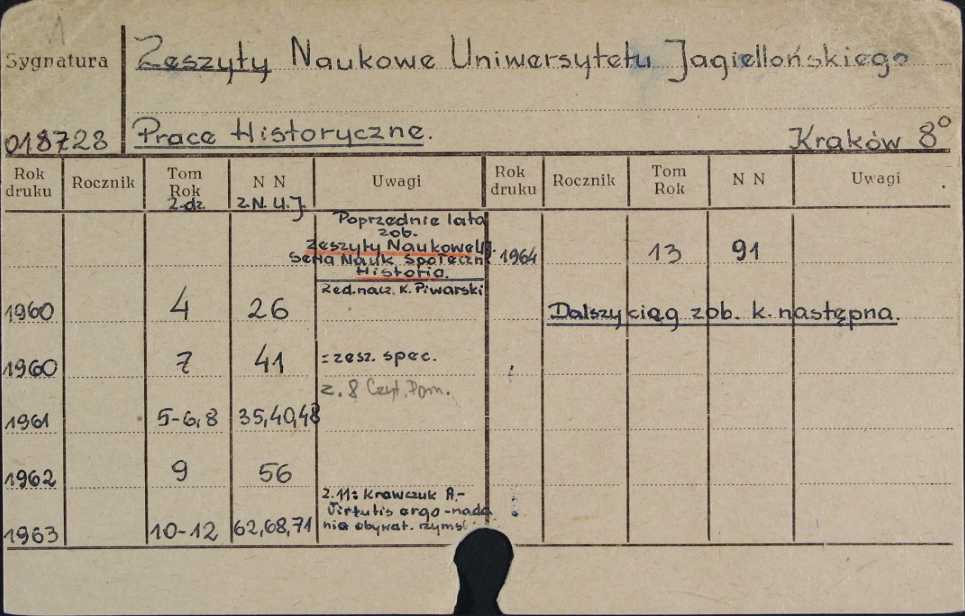 1
Sygnatura Zeszyty Naukowe Uniwersytetu Jagiellońskiego
018728 Prace Historyczne. Kraków 8°
Rok druku Rocznik Tom Rok N N Uwagi Rok druku Rocznik Tom Rok N N Uwagi
z.dz z.N.U.J
Poprzednie lata
zob.
Zeszyty Naukowe U.J.
Seria Nauk Społeczn
Historia.
1964 13 91
Red.nacz. K. Piwarski
1960 4 26
Dalszy ciąg zob. k. następna.
1960 7 41 = zesz. spec.
z. 8 Czyt. Pom.
1961 5-6,8 35,40,48
1962 9 56
z. 11: Krawczuk A.-
Virtutis ergo -nada
nia obywat. rzyms
1963 10-12 62,68,71